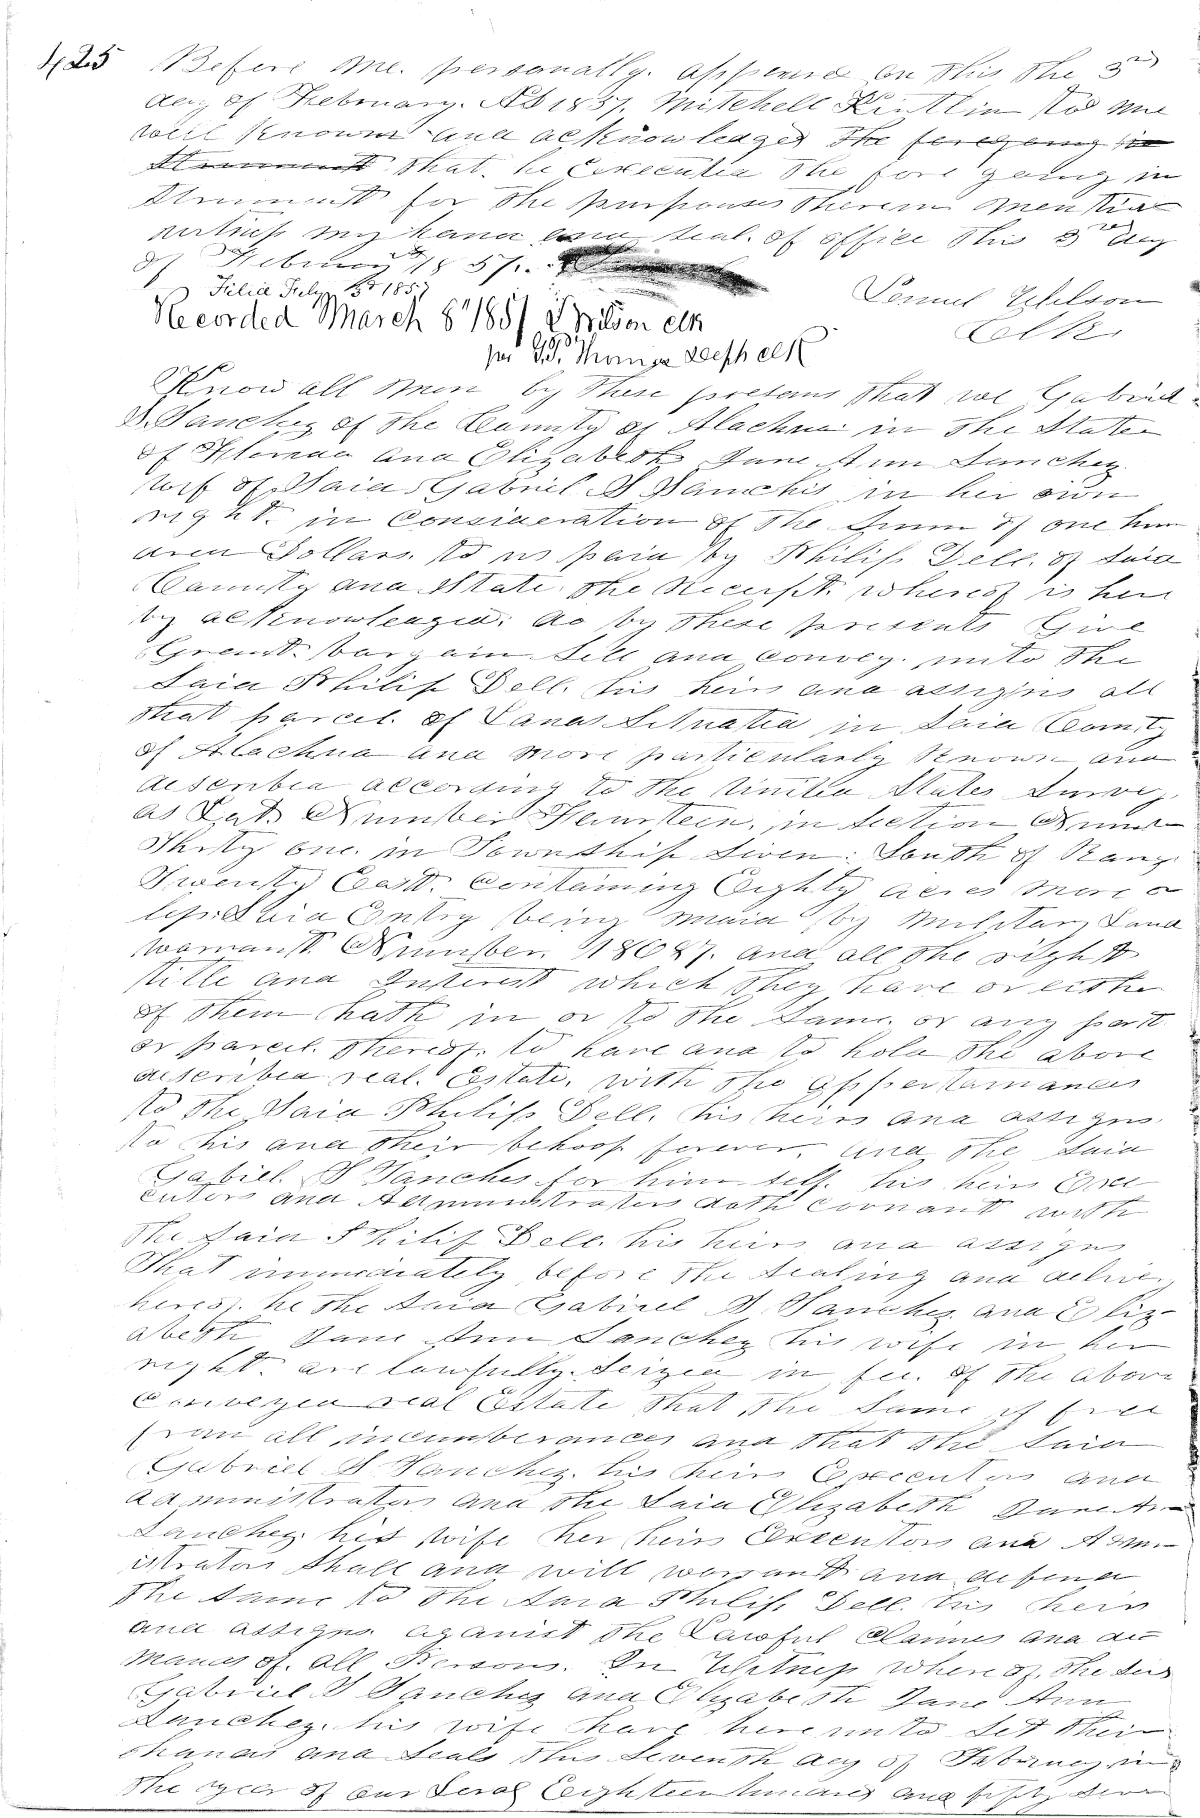 425 Before me. personally. appeared on this the 3rd
day of February. AD 1857. Mitchell to me
well known and acknowledged the foregoing in
strument that. he Executed the fore going in
strument for the purposes therein mentio
witness my hand and seal. of office this 3rd day
of February 1857.
Filed 3d 1857
Lemuel Wilson
Clk.
Recorded March 8th 1857 L Wilson clk
per Thomas Depty clk
Know all men by these presens that we Gabriel
S. Sanchez of the County of Alachua in the State
of Florida and Elizabeth Jane Ann Sanchez
wif of Said Gabriel S Sanchis in her own
right. in Consideration of the Sum of one hun
dred Dollars. to us paid by Philip Dell. of said
County and State the Receipt whereof is here
by acknowledged. do by these presents Give
Grant. bargain Sell and convey. unto the
Said Philip Dell. his heirs and assigns all
that parcel. of Land Situated in Said County
of Alachua and more particularly Known and
described according to the United States Survey
as Lot Number Fourteen. in Section Num
Thirty one. in Township Seven. South of Range
Twenty East. Containing Eighty acres more o
less. Said Entry being maid by Military Land
warrant. Number. 18087. and all the right
title and Interest which they have or either
of them hath in or to the Same. or any part
or parcel. thereof. to have and to hold the above
described real. Estate. with the appertainances
to the Said Philip Dell. his heirs and assigns.
to his and their behoof forever. and the Said
Gabiel. S Sanches for him self. his heirs Exe
cutors and Administrators doth covnant with
the said Philip Dell. his heirs and assigns
That immediately before the sealing and delivey
hereof. he the Said Gabriel S Sanchez and Eliz-
abeth Jane Ann Sanchez his wife in her
right. are lawfully. Seized in fee. of the above
Conveyed real Estate that the Same if free
from all incumberances and that the Said
Gabriel S Sanchez. his heirs Executors and
administrators and the Said Elizabeth Jane An
Sanchez. his wife her heirs Executors and Admn-
istrators Shall and will warrant and defend
the same to the Said Philip Dell. his heirs
and assigns against the Lawful Claimes and de
mands of. all Persons. In Witness whereof. the said
Gabriel S Sanchez and Elizabeth Jane Ann
Sanchez. his wife have here unto Set their
hands and Seals this Seventh day of February in
the year of our Lord Eighteen hundred and fifty seven